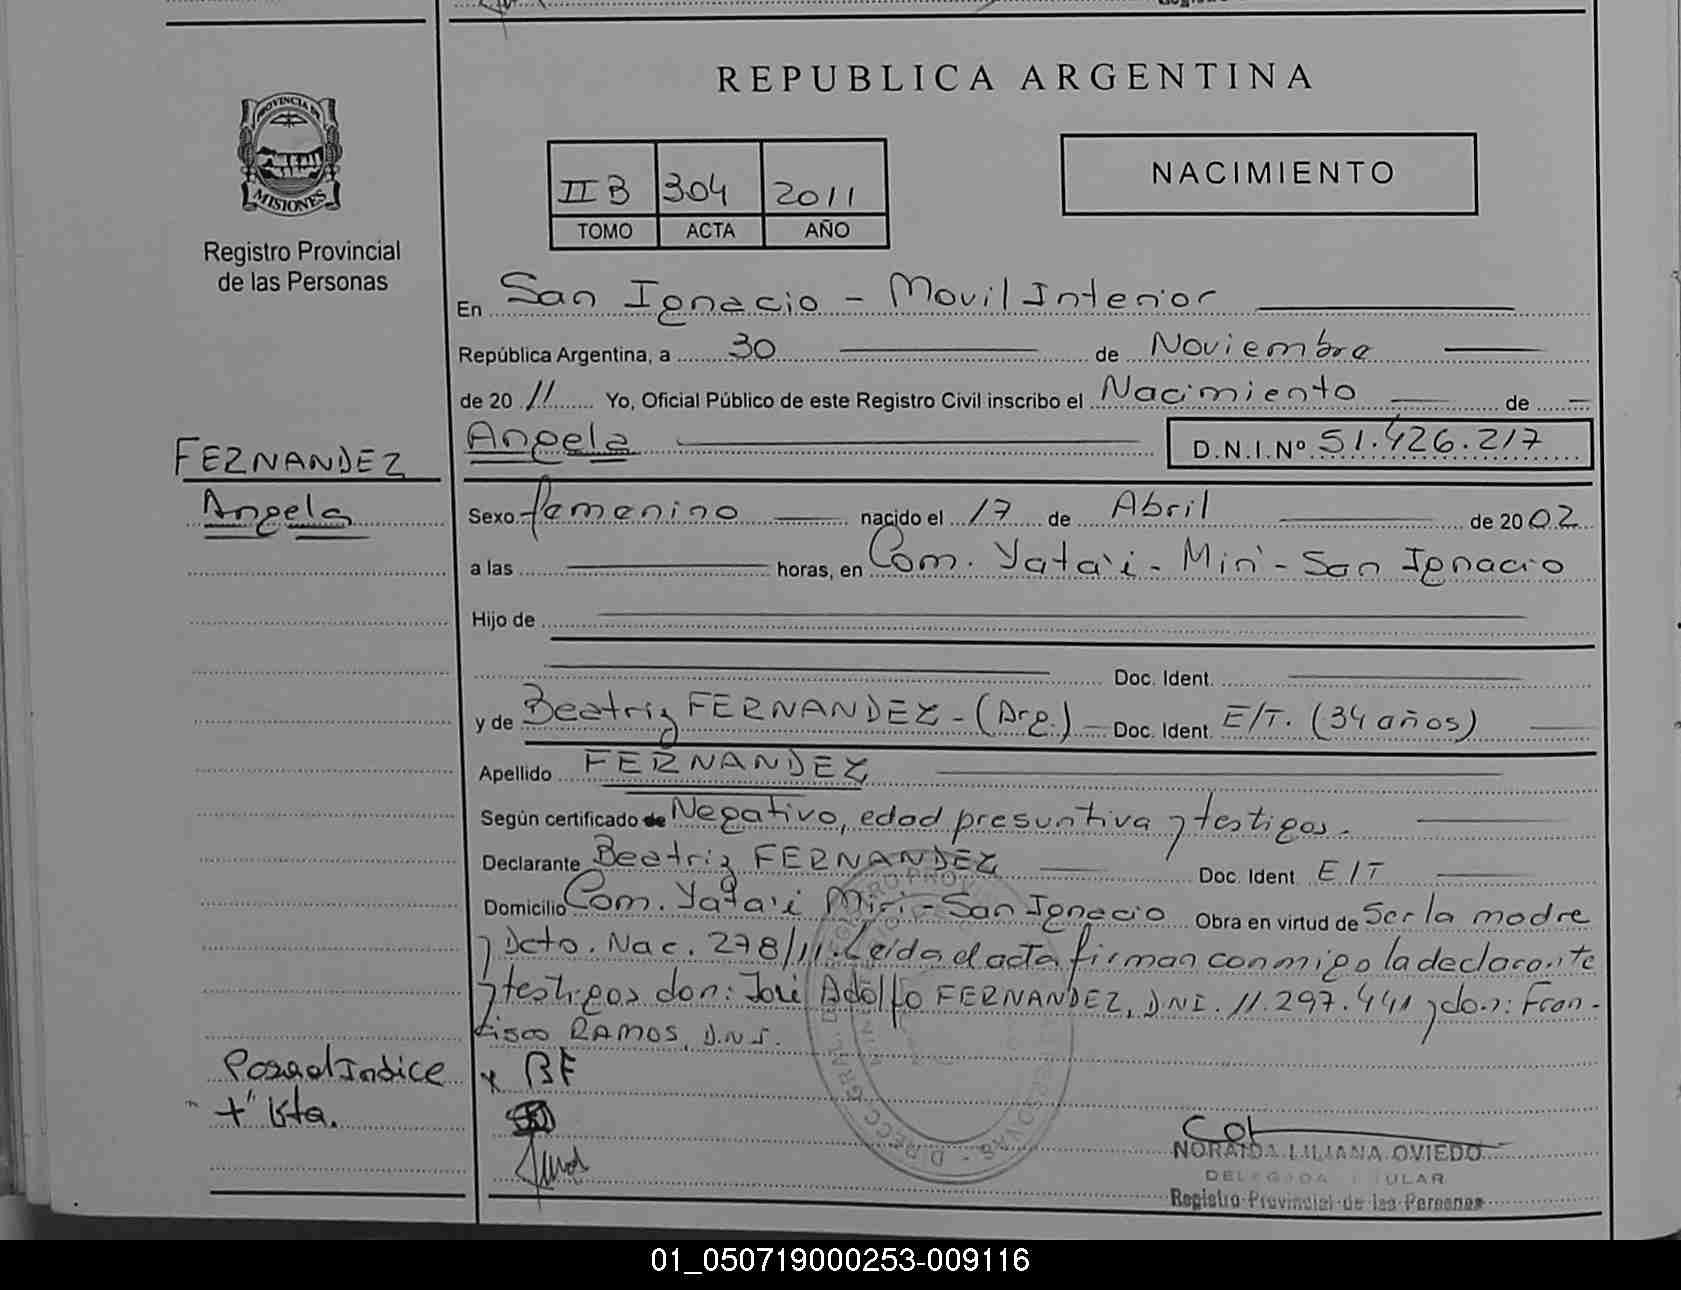 REPUBLICA ARGENTINA
PROVINCIA DE
MISIONES
Registro Provincial
de las Personas
II B 304 2011
TOMO ACTA AÑO
NACIMIENTO
En San Ignacio - Movil Interior
República Argentina, a 30 de Noviembre
de 20 11 Yo, Oficial Público de este Registro Civil inscribo el Nacimiento de
FERNANDEZ
Angela
Angela D.N.I.Nº 51.426.217
Sexo femenino nacido el 17 de Abril de 20 02
a las horas, en Com. Yata'i - Miri - San Ignacio
Hijo de
Doc. Ident.
y de Beatriz FERNANDEZ - (Arg.) Doc. Ident. E/T. (34 años)
Apellido FERNANDEZ
Según certificado de Negativo, edad presuntiva y testigos.
Declarante Beatriz FERNANDEZ Doc. Ident. E/T
Domicilio Com. Yata'i Miri - San Ignacio Obra en virtud de Ser la madre
y Dcto. Nac. 278/11. Leída el acta firman conmigo la declarante
y testigos don: José Adolfo FERNANDEZ, DNI. 11.297.441 y don: Fran-
cisco RAMOS, D.N.I.
x BF
NORAIDA LILIANA OVIEDO
DELEGADA TITULAR
Registro Provincial de las Personas
01_050719000253-009116